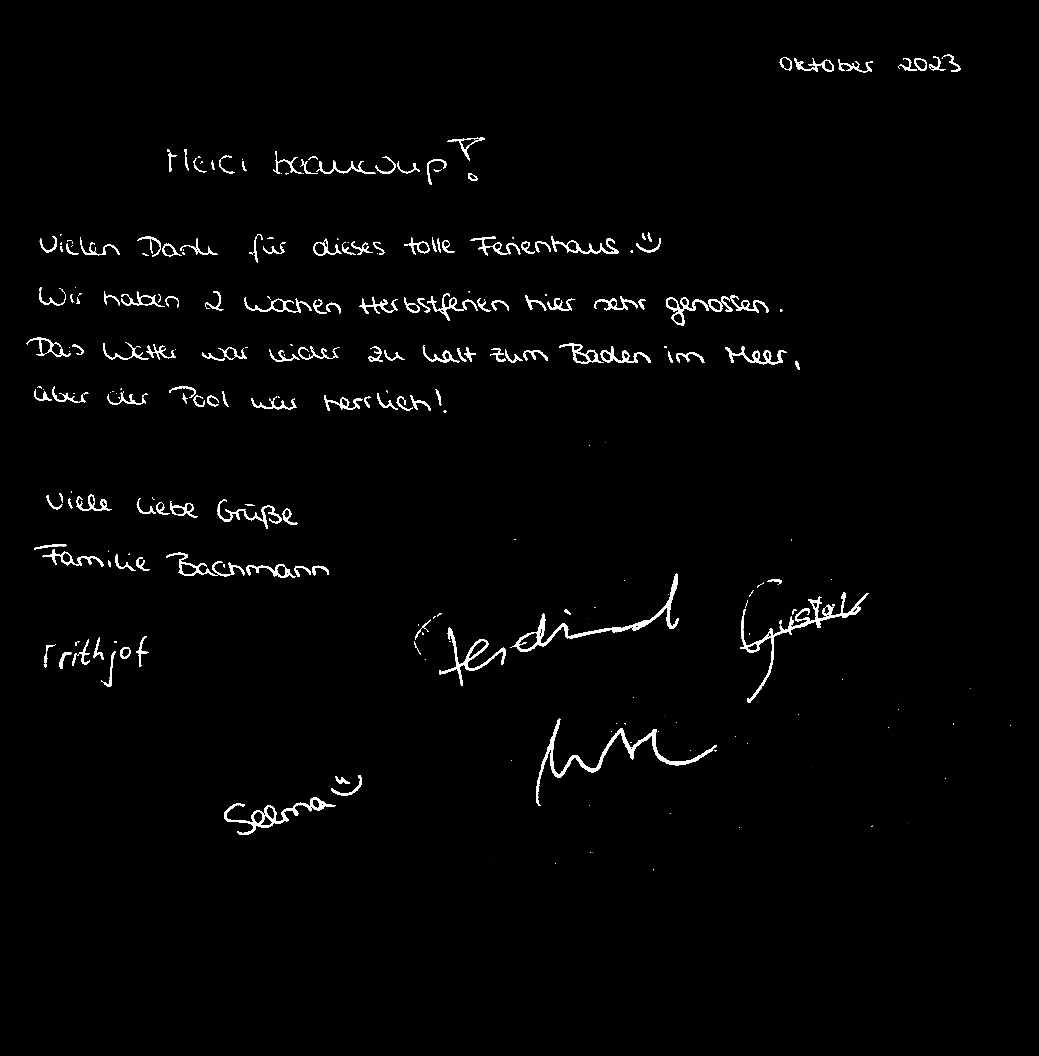 Oktober 2023
Merci beaucoup!
Vielen Dank für dieses tolle Ferienhaus. :)
Wir haben 2 Wochen Herbstferien hier sehr genossen.
Das Wetter war leider zu kalt zum Baden im Meer,
aber der Pool war herrlich!
Viele liebe Grüße
Familie Bachmann
Ferdinand Gustav
Frithjof
Selma :)